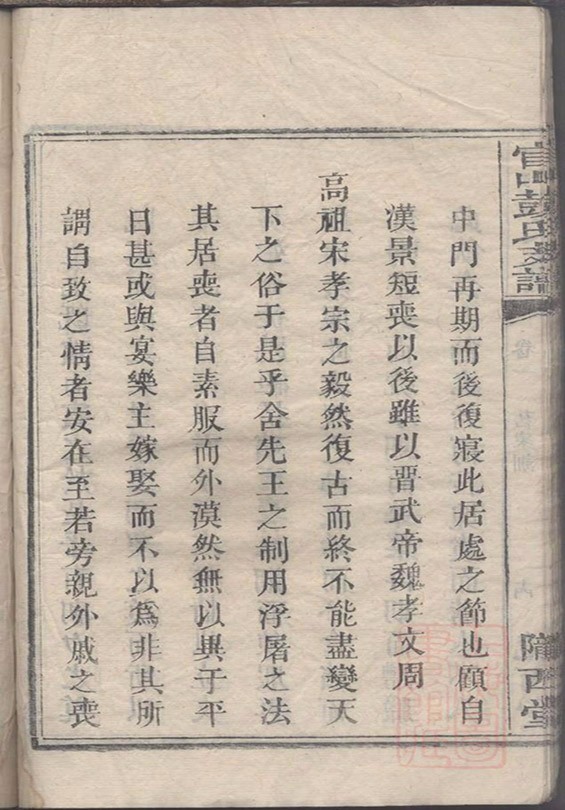 官山彭氏族譜
隴西堂
中門再期而後復寢此居處之節也顧自
漢景短喪以後雖以晋武帝魏孝文周
高祖宋孝宗之毅然復古而終不能盡變天
下之俗于是乎舍先王之制用浮屠之法
其居喪者自素服而外漠然無以異于平
日甚或與宴樂主嫁娶而不以爲非其所
謂自致之情者安在至若旁親外戚之喪